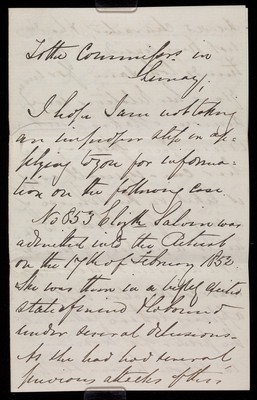 To the Commissrs. in
Lunacy,
I hope I am not taking
an improper step in ap-
plying to you for informa-
tion on the following case
No 853 Galvin was
admitted into the Retreat
on the 17th of February 1852
She was then in a highly excited
state of mind & laboured
under several delusions.
As she had had several
previous attacks of this